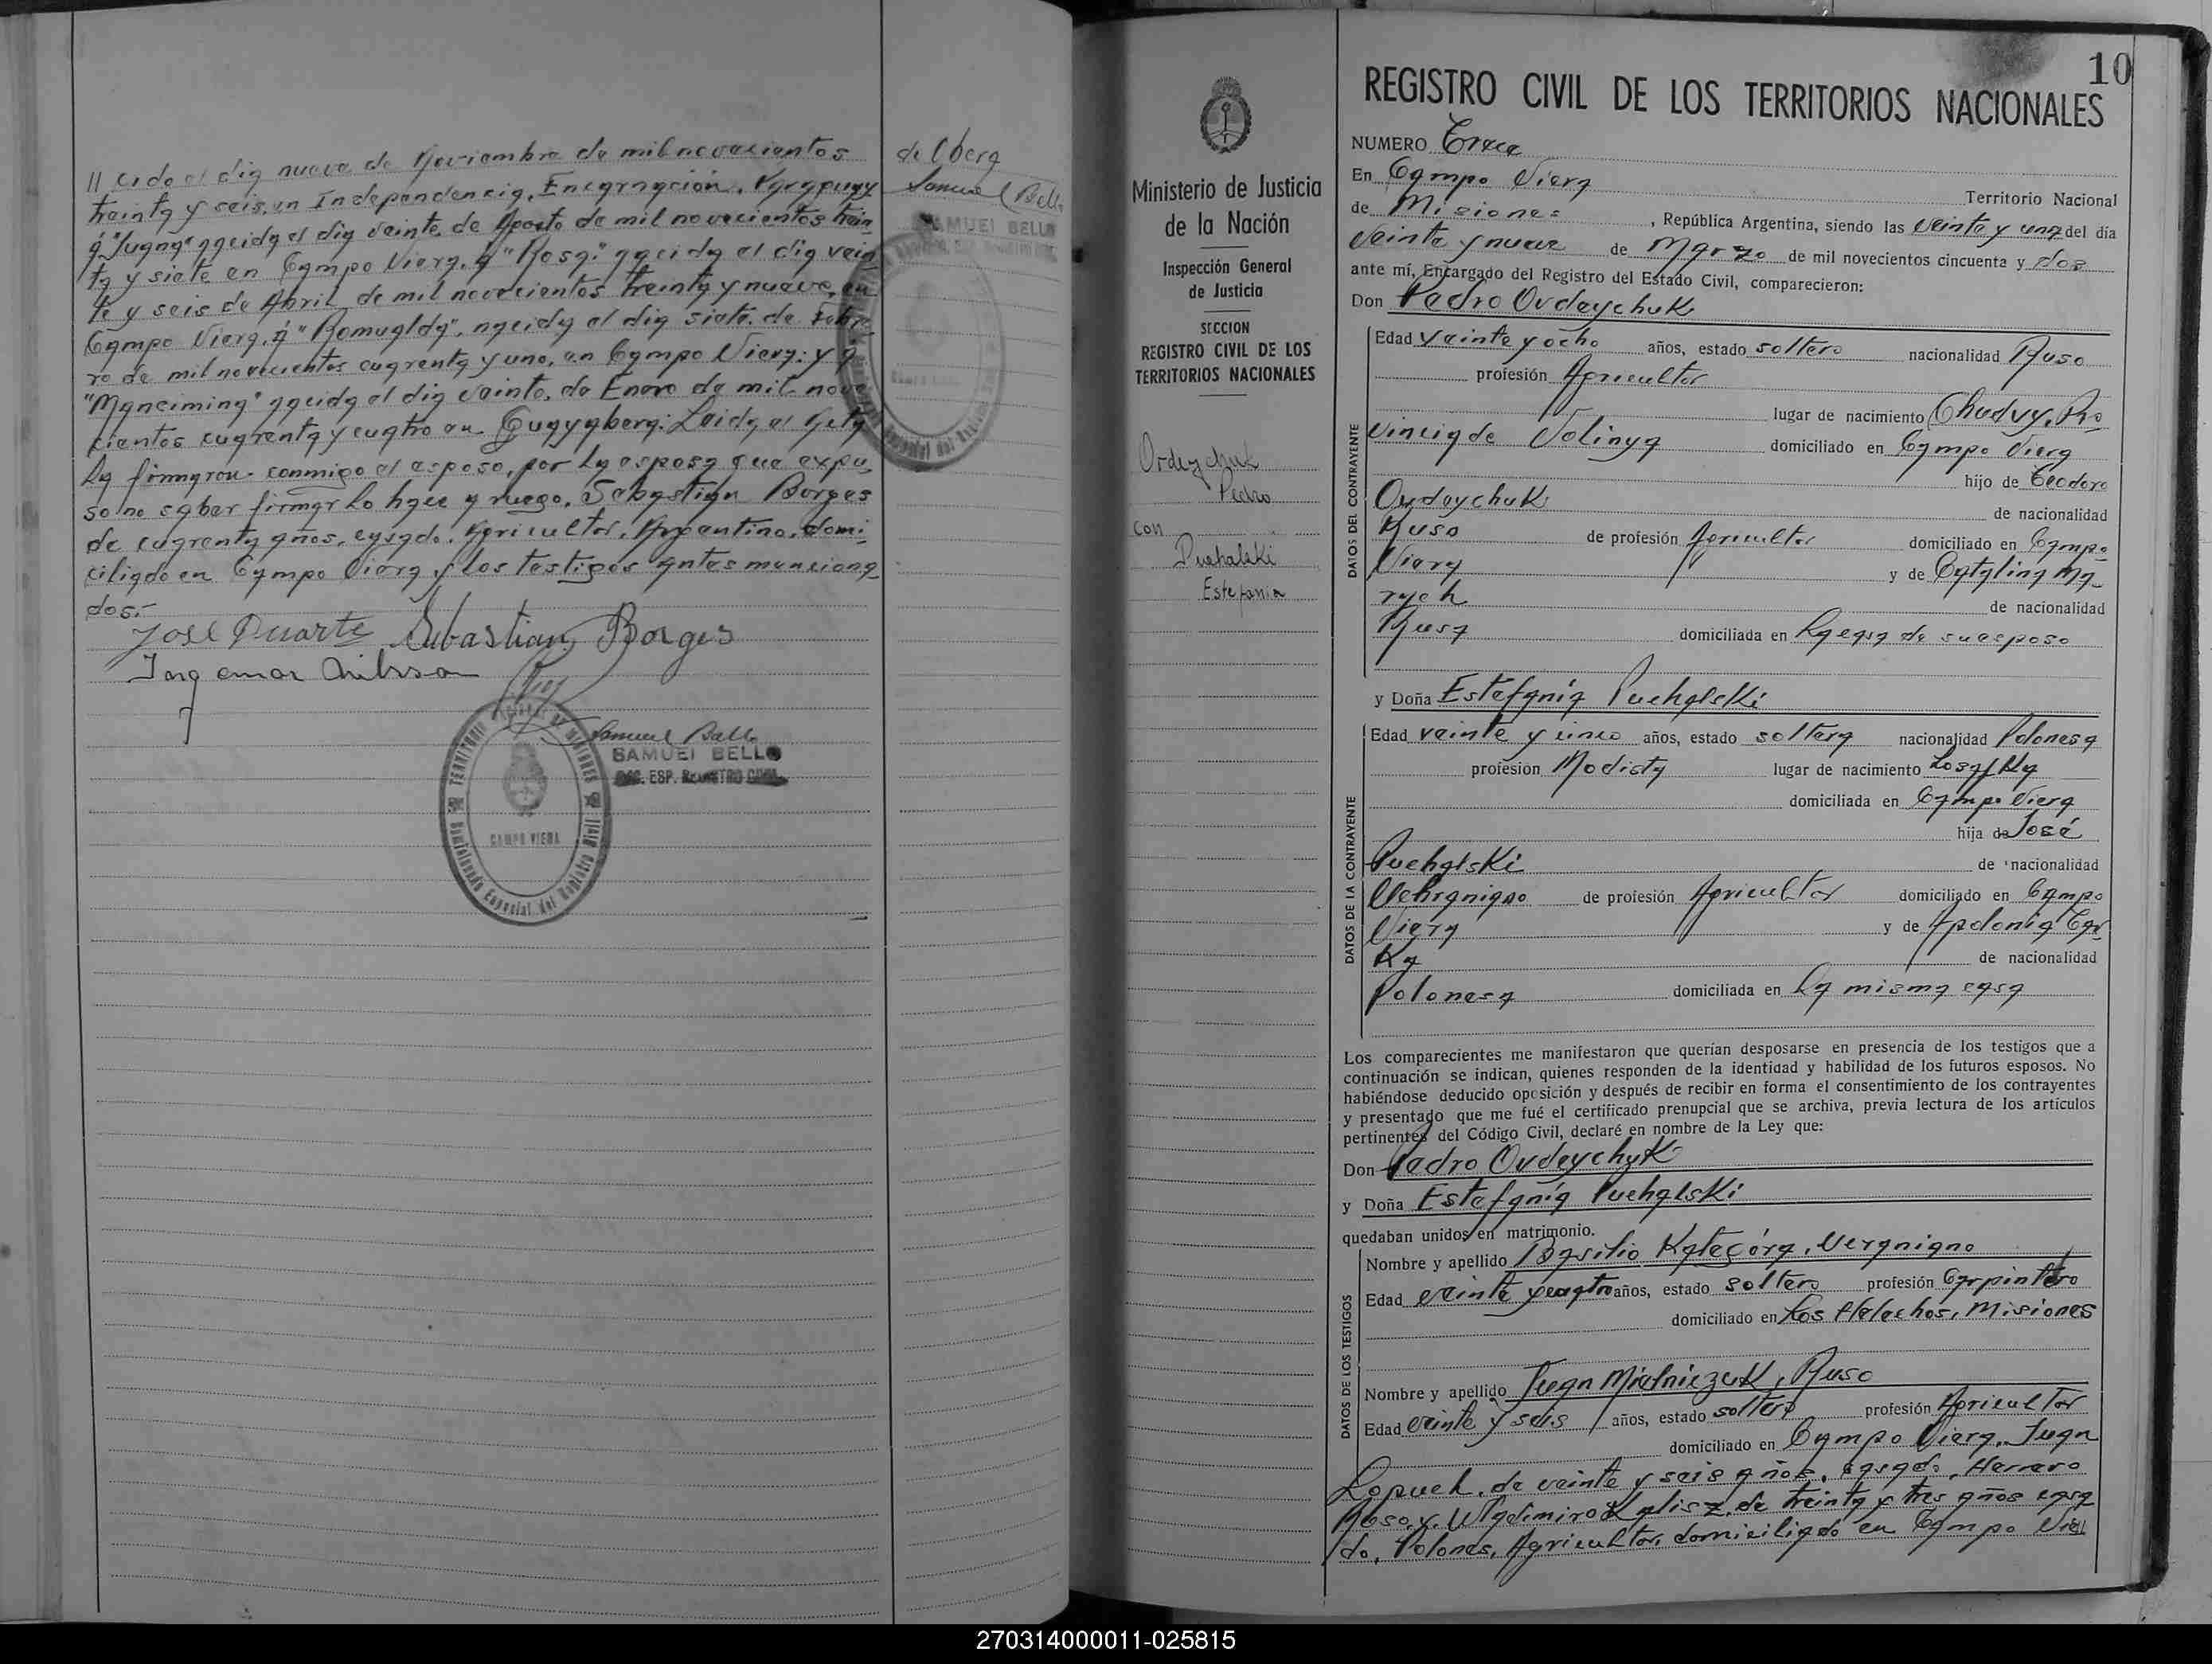 // cido el dia nueve de Noviembre de mil novecientos
treinta y seis, en Independencia, Encarnación, Paraguay
á "Juana" nacida el dia veinte de Agosto de mil novecientos trein
ta y siete en Campo Viera, á "Rosa" nacida el dia vein
te y seis de Abril de mil novecientos treinta y nueve, en
Campo Viera, á "Romualda", nacida el dia siete de Febre
ro de mil novecientos cuarenta y uno, en Campo Viera: y á
nacida el dia veinte de Enero de mil nove
cientos cuarenta y cuatro en Leida el Acta
la firmaron conmigo el esposo, por la esposa que expu
so no saber firmar lo hace a ruego, Sebastian Borges
de cuarenta años, casado, Agricultor, Argentino, domi
ciliado en Campo Viera y los testigos antes menciona
dos.-
José Duarte Sebastian Borges
Samuel Bello
SAMUEL BELLO
ESP. REGISTRO CIVIL
TERRITORIO NACIONAL DE MISIONES
CAMPO VIERA
Comisionado Especial del Registro Civil
de Oberá
Samuel Bello
SAMUEL BELLO
Ministerio de Justicia
de la Nación
Inspección General
de Justicia
SECCION
REGISTRO CIVIL DE LOS
TERRITORIOS NACIONALES
Ovdeychuk
Pedro
con
Puchalski
Estefania
10
REGISTRO CIVIL DE LOS TERRITORIOS NACIONALES
NUMERO Trece
En Campo Viera Territorio Nacional
de Misiones, República Argentina, siendo las veinte y una del día
veinte y nueve de Marzo de mil novecientos cincuenta y dos
ante mí, Encargado del Registro del Estado Civil, comparecieron:
Don Pedro Ovdeychuk
DATOS DEL CONTRAYENTE
Edad veinte y ocho años, estado soltero nacionalidad Ruso
profesión Agricultor
lugar de nacimiento Chudvy, Pro
vincia de Volinya domiciliado en Campo Viera
hijo de Teodoro
Ovdeychuk de nacionalidad
Ruso de profesión Agricultor domiciliado en Campo
Viera y de Catalina Ma
rych de nacionalidad
Rusa domiciliada en la casa de su esposo
y Doña Estefanía Puchalski
DATOS DE LA CONTRAYENTE
Edad veinte y cinco años, estado soltera nacionalidad Polonesa
profesión Modista lugar de nacimiento
domiciliada en Campo Viera
hija de José
Puchalski de nacionalidad
Uchraniano de profesión Agricultor domiciliado en Campo
Viera y de Apolonia
Ka de nacionalidad
Polonesa domiciliada en la misma casa
Los comparecientes me manifestaron que querían desposarse en presencia de los testigos que a
continuación se indican, quienes responden de la identidad y habilidad de los futuros esposos. No
habiéndose deducido oposición y después de recibir en forma el consentimiento de los contrayentes
y presentado que me fué el certificado prenupcial que se archiva, previa lectura de los artículos
pertinentes del Código Civil, declaré en nombre de la Ley que:
Don Pedro Ovdeychuk
y Doña Estefanía Puchalski
quedaban unidos en matrimonio.
DATOS DE LOS TESTIGOS
Nombre y apellido Basilio Kategóra, Ucraniano
Edad veinte y cuatro años, estado soltero profesión Carpintero
domiciliado en Los Helechos, Misiones
Nombre y apellido Juan Mielniczuk, Ruso
Edad veinte y seis años, estado soltero profesión Agricultor
domiciliado en Campo Viera, Juan
Lopuch, de veinte y seis años, casado, Herrero
Ruso, y Wladimiro Kalisz, de treinta y tres años casa
do, Polones, Agricultor, domiciliado en Campo Vie//
270314000011-025815